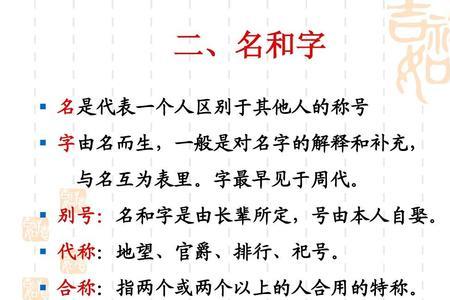 二、名和字
名是代表一个人区别于其他人的称号
字由名而生，一般是对名字的解释和补充，
与名互为表里。字最早见于周代。
别号：名和字是由长辈所定，号由本人自娶。
代称：地望、官爵、排行、祀号。
合称：指两个或两个以上的人合用的特称。